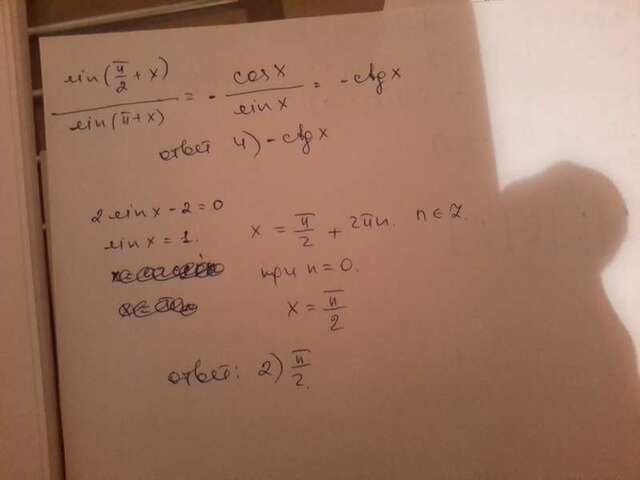 sin(π/2 + x) / sin(π + x) = - cos x / sin x = - ctg x
ответ 4) - ctg x
2 sin x - 2 = 0
sin x = 1. x = π/2 + 2πn. n ∈ Z.
при n = 0.
x = π/2
ответ: 2) π/2.